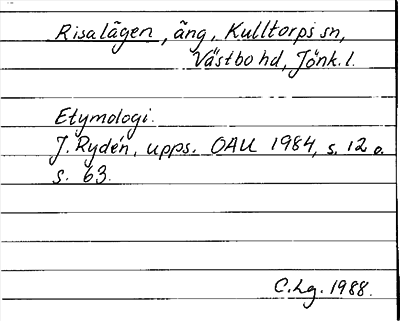 Risalägen, äng, Kulltorps sn,
Västbo hd, Jönk. l.
Etymologi.
J. Rydén, upps. OAU 1984, s. 12 o.
s. 63.
C. Lg. 1988.